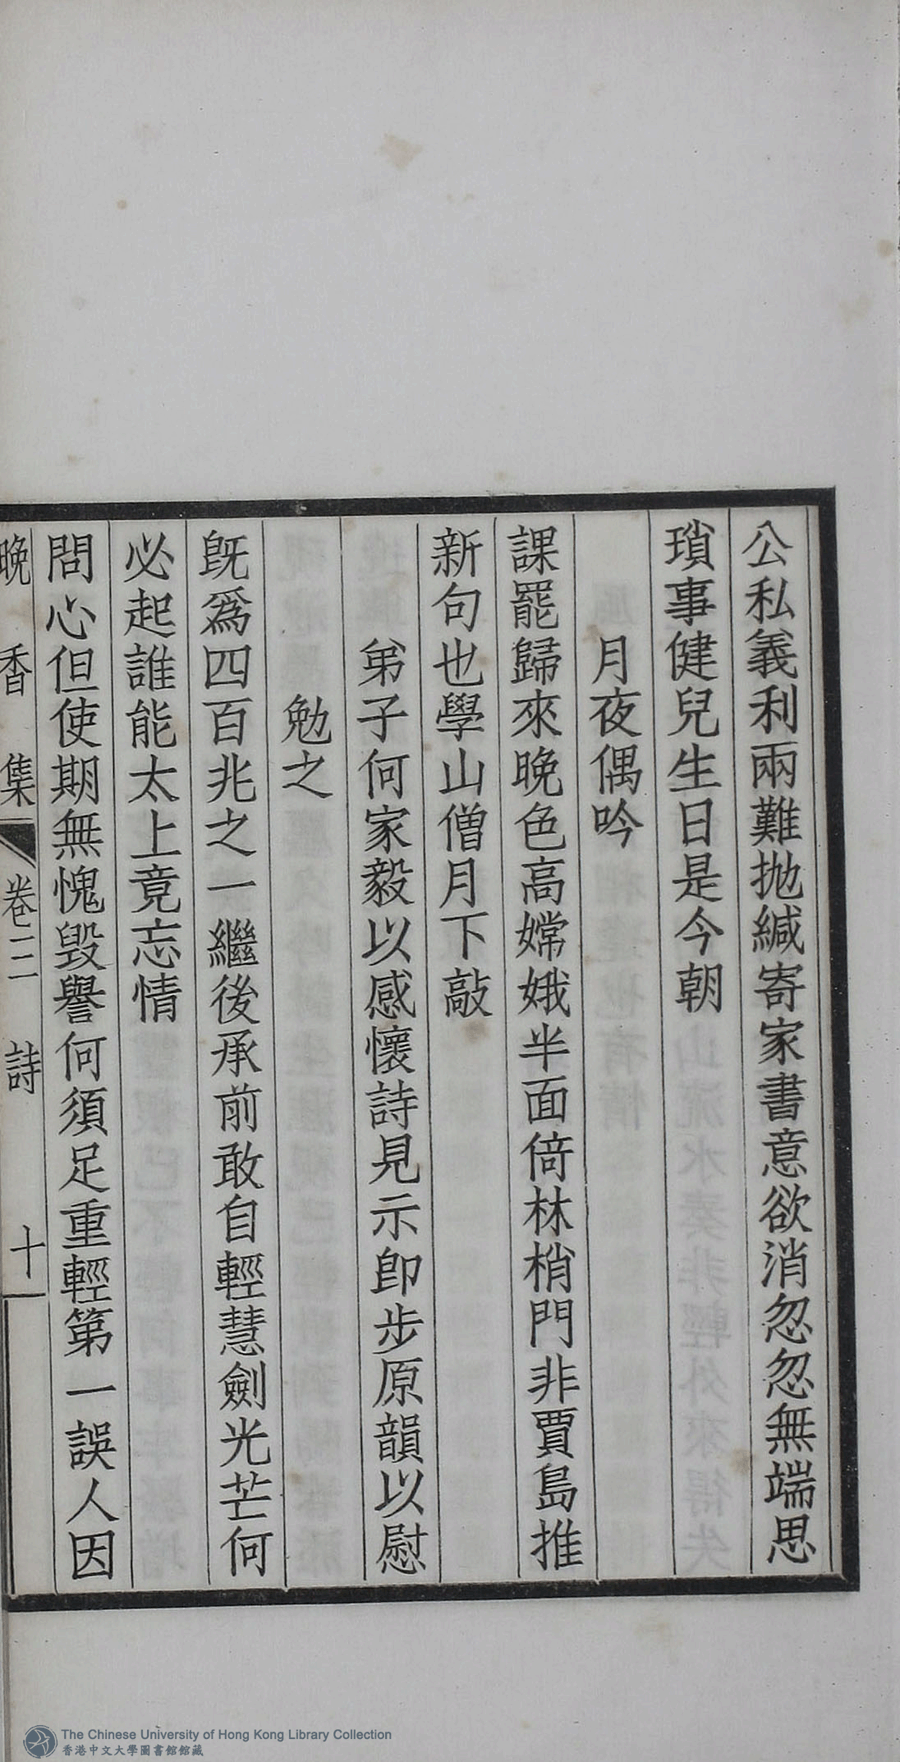 公私義利兩難抛緘寄家書意欲消忽忽無端思
瑣事健兒生日是今朝
月夜偶吟
課罷歸來晚色高嫦娥半面倚林梢門非賈島推
新句也學山僧月下敲
弟子何家毅以感懷詩見示即步原韻以慰
勉之
既爲四百兆之一繼後承前敢自輕慧劍光芒何
必起誰能太上竟忘情
問心但使期無愧毀譽何須足重輕第一誤人因
晚香集 卷二 詩 十
The Chinese University of Hong Kong Library Collection
香港中文大學圖書館館藏